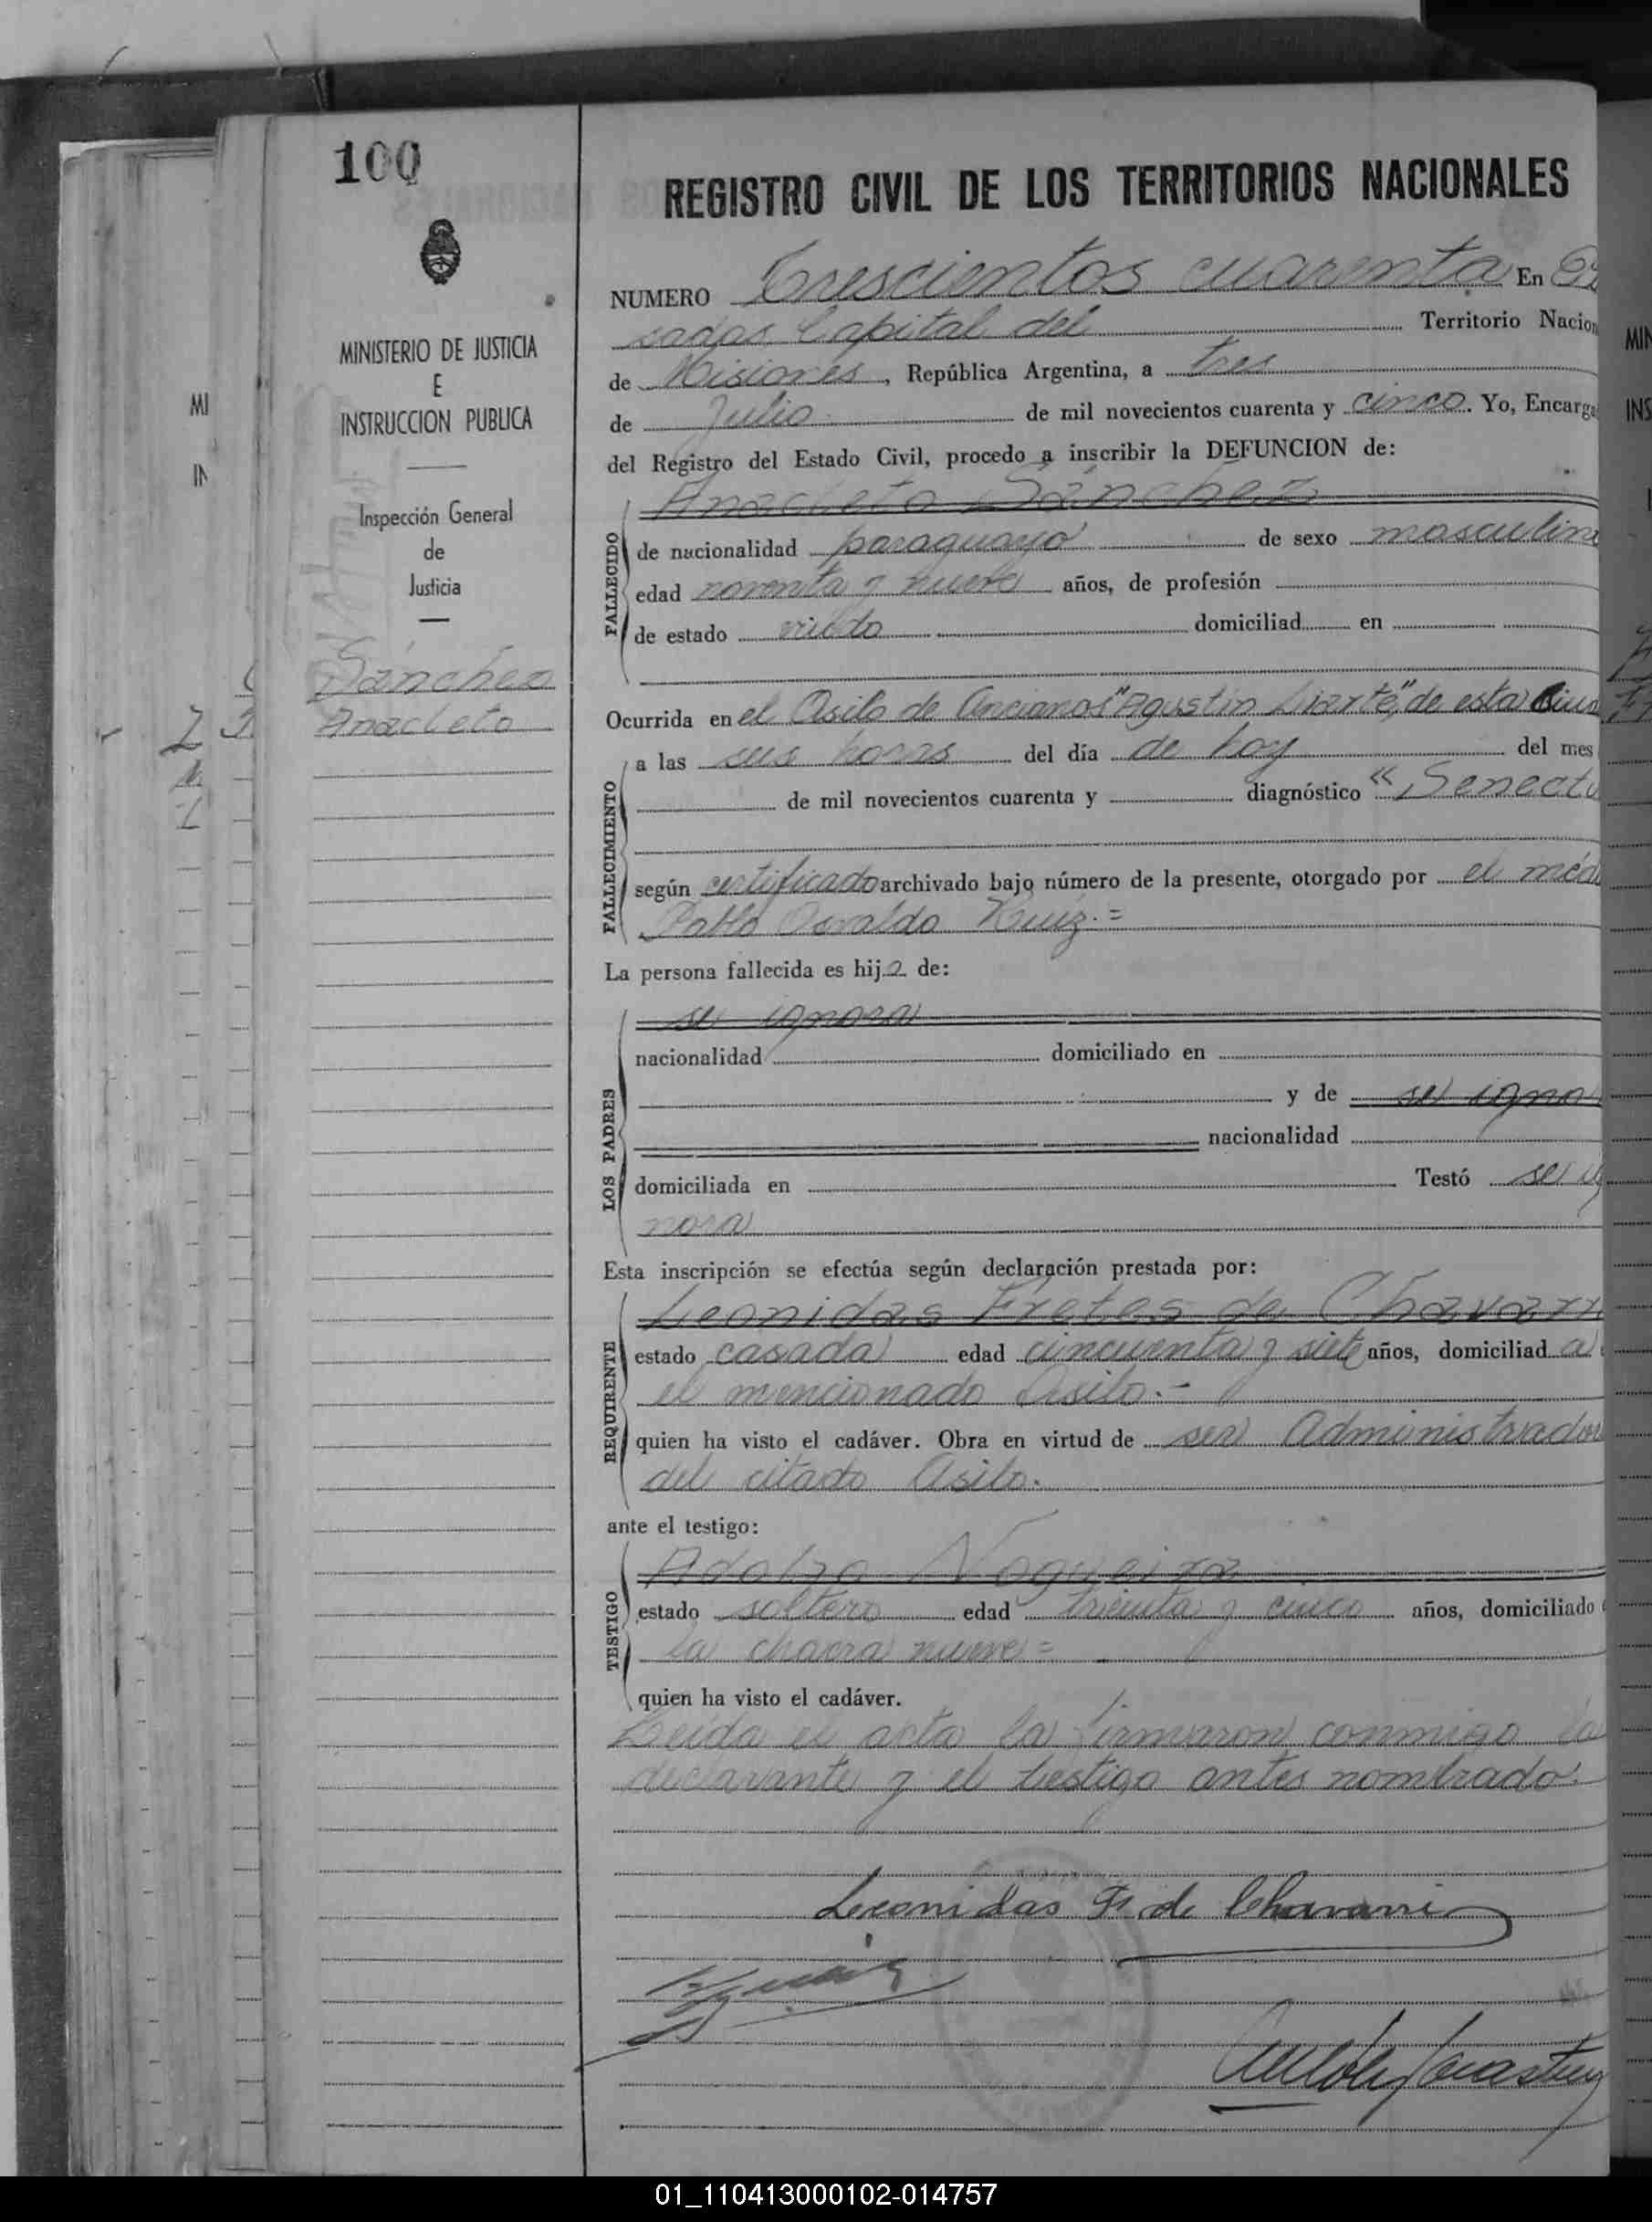 100
MINISTERIO DE JUSTICIA
E
INSTRUCCION PUBLICA
Inspección General
de
Justicia
Sánchez
Anacleto
REGISTRO CIVIL DE LOS TERRITORIOS NACIONALES
NUMERO Trescientos cuarenta En Po
sadas Capital del Territorio Nacion
de Misiones, República Argentina, a tres
de Julio de mil novecientos cuarenta y cinco. Yo, Encarga
del Registro del Estado Civil, procedo a inscribir la DEFUNCION de:
Anacleto Sánchez
FALLECIDO
de nacionalidad paraguayo de sexo masculino
edad noventa y nueve años, de profesión
de estado viudo domiciliad en
Ocurrida en el Asilo de Ancianos "Agustín Liarte," de esta Ciud
FALLECIMIENTO
a las seis horas del día de hoy del mes
de mil novecientos cuarenta y diagnóstico « Senectu
según certificado archivado bajo número de la presente, otorgado por el méd
Pablo Osvaldo Ruiz.=
La persona fallecida es hijo de:
LOS PADRES
se ignora
nacionalidad domiciliado en
y de se igno
nacionalidad
domiciliada en Testó se ig
nora
Esta inscripción se efectúa según declaración prestada por:
REQUIRENTE
Leonidas Fretes de Chavarri
estado casada edad cincuenta y siete años, domiciliad a
el mencionado Asilo.-
quien ha visto el cadáver. Obra en virtud de ser Administrador
del citado Asilo.
ante el testigo:
TESTIGO
Adolfo Nogueira
estado soltero edad treinta y cinco años, domiciliado
la chacra nueve=
quien ha visto el cadáver.
Leida el acta la firmaron conmigo la
declarante y el testigo antes nombrado.
Leonidas F. de Chavarri
01_110413000102-014757